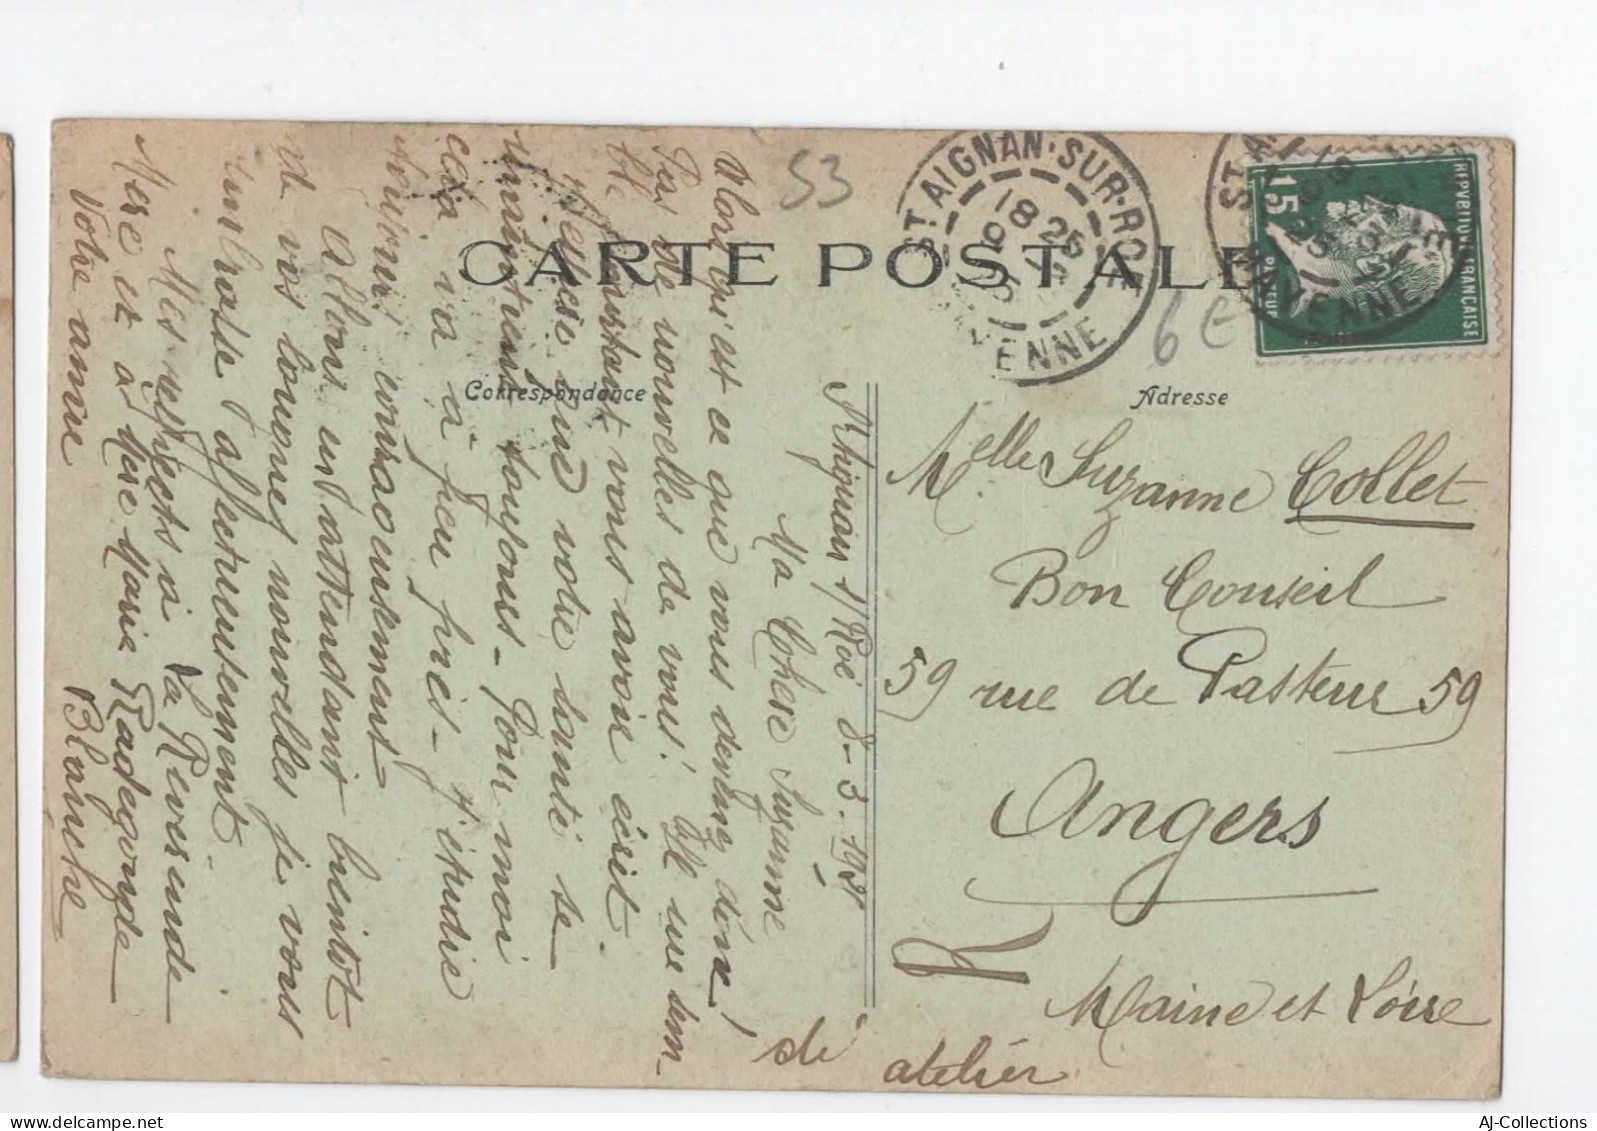 CARTE POSTALE
Correspondance
Adresse
53
6 €
ST AIGNAN-SUR-ROE
18 25
9
3
MAYENNE
REPUBLIQUE FRANCAISE
15
PASTEUR
Melle Suzanne Collet
Bon Conseil
59 rue de Pasteur 59
Angers
Maine et Loire
St Aignan s/ Roë 8-3-192
Ma Chère Suzanne
Alors qu'est ce que vous devenez donc!
Pas de nouvelles de vous! Il me sem
ble pourtant vous avoir écrit.
J'espère que votre santé se
maintient toujours - Pour moi
cela va à peu près - J'étudie
toujours courageusement -
Allons en attendant bientôt
de vos bonnes nouvelles je vous
embrasse affectueusement
Mes respects à la Révérende
Mère et à Mère Marie Radegonde
Votre amie
Blanche
de
atelier
AJ-Collections